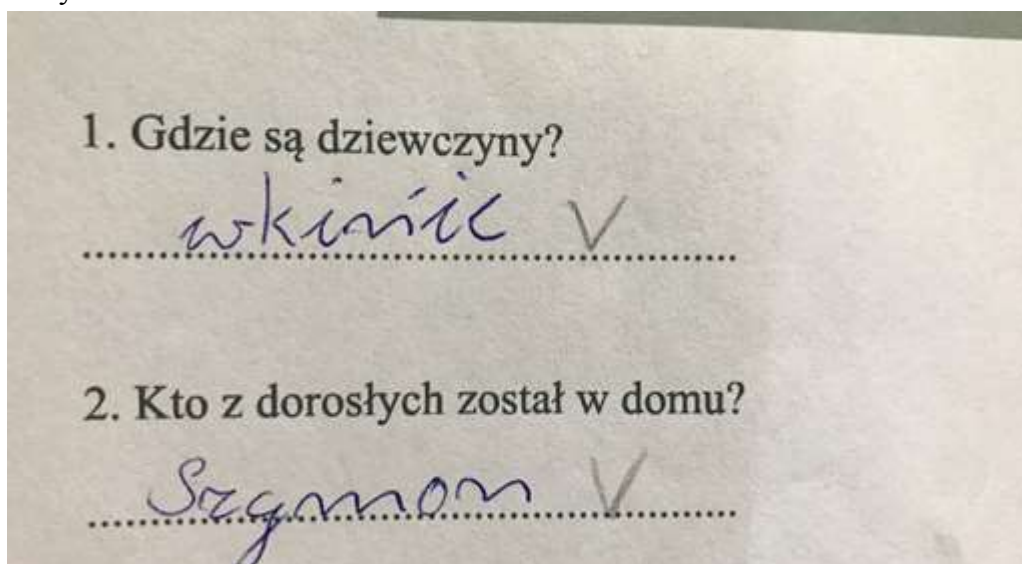 1. Gdzie są dziewczyny?
wkinić V
2. Kto z dorosłych został w domu?
Szymon V